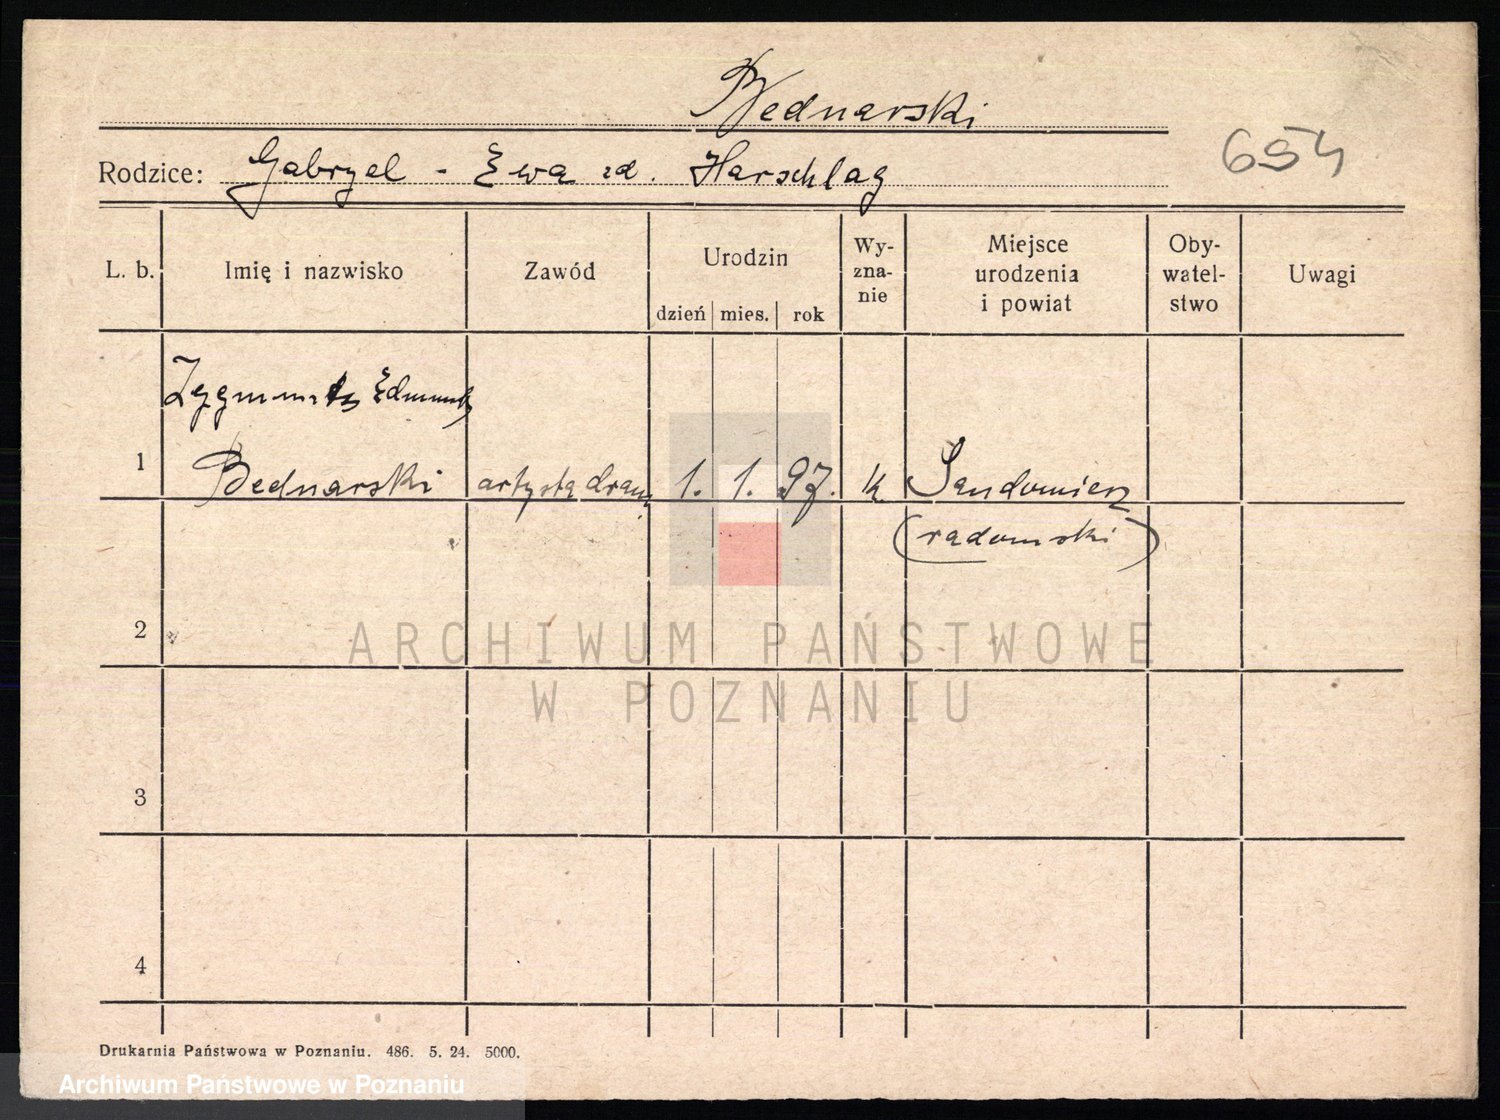 Bednarski
654
Rodzice: Gabryel - Ewa zd. Harschlag
L. b. Imię i nazwisko Zawód Urodzin dzień mies. rok Wy-zna-nie Miejsce urodzenia i powiat Oby-watel-stwo Uwagi
Zygmunt Edmund
1 Bednarski artysta dram. 1. 1. 97. k Sandomierz
(radomski)
2
3
4
ARCHIWUM PAŃSTWOWE
W POZNANIU
Drukarnia Państwowa w Poznaniu. 486. 5. 24. 5000.
Archiwum Państwowe w Poznaniu